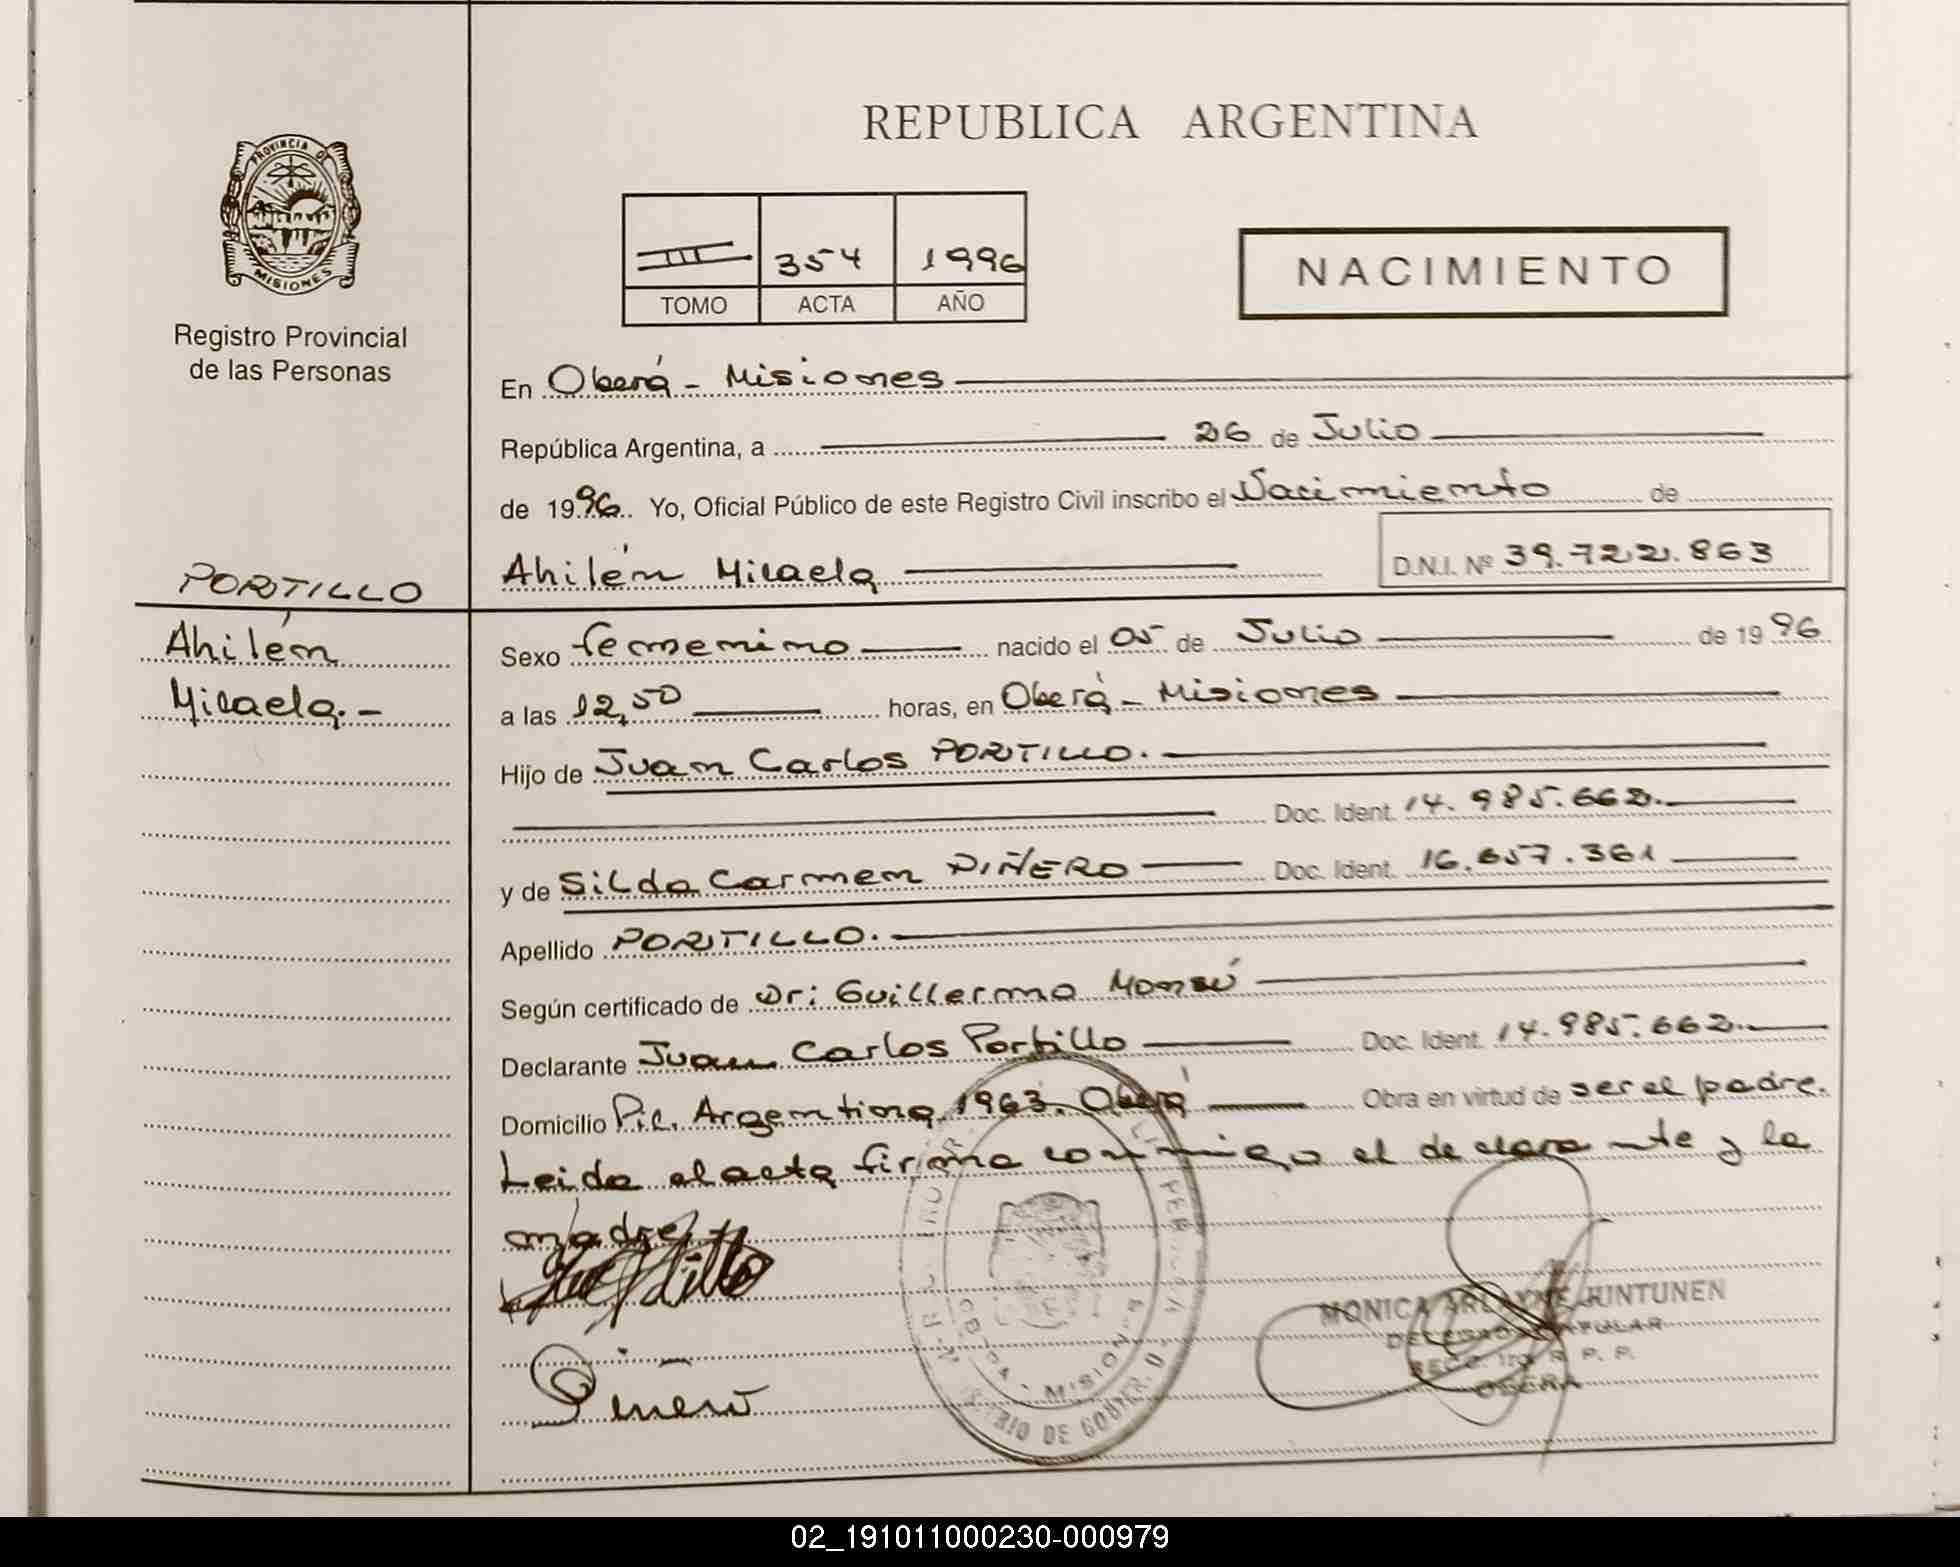 REPUBLICA ARGENTINA
PROVINCIA DE
MISIONES
Registro Provincial
de las Personas
III 354 1996
TOMO ACTA AÑO
NACIMIENTO
En Oberá - Misiones
República Argentina, a 26 de Julio
de 1996. Yo, Oficial Público de este Registro Civil inscribo el Nacimiento de
Ahilén Micaela D.N.I. Nº 39.722.863
PORTILLO
Ahilén
Micaela.-
Sexo femenino nacido el 05 de Julio de 1996
a las 12,50 horas, en Oberá - Misiones
Hijo de Juan Carlos PORTILLO.
Doc. Ident. 14.985.662.
y de Silda Carmen PIÑERO Doc. Ident. 16.657.361
Apellido PORTILLO.
Según certificado de Dr: Guillermo
Declarante Juan Carlos Portillo Doc. Ident. 14.985.662.
Domicilio Pic. Argentina 1963. Oberá Obra en virtud de ser el padre.
Leida el acta firma conmigo el declarante y la
madre
Piñero
MONICA ARLAYNE JUNTUNEN
DELEGADA TITULAR
SECC. 1ra R. P. P.
OBERA
OBERA - MISIONES
02_191011000230-000979